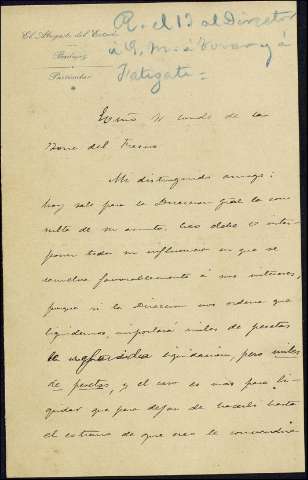 R. el 13 al Director
á S. M. á
El Abogado del Estado
Badajoz
Particular
Exmo Sr Conde de la
Torre del Fresno
Mi distinguido amigo:
hoy sale para la Direccion gral la con
sulta de su asunto. Creo debe V. inter
poner toda su influencia en que se
resuelva favorablemente á sus intereses,
porque si la Direccion nos ordena que
liquidemos, importará miles de pesetas
la liquidacion, pero miles
de pesetas, y el caso es más para li
quidar que para dejar de hacerlo hasta
el extremo de que creo le convendria